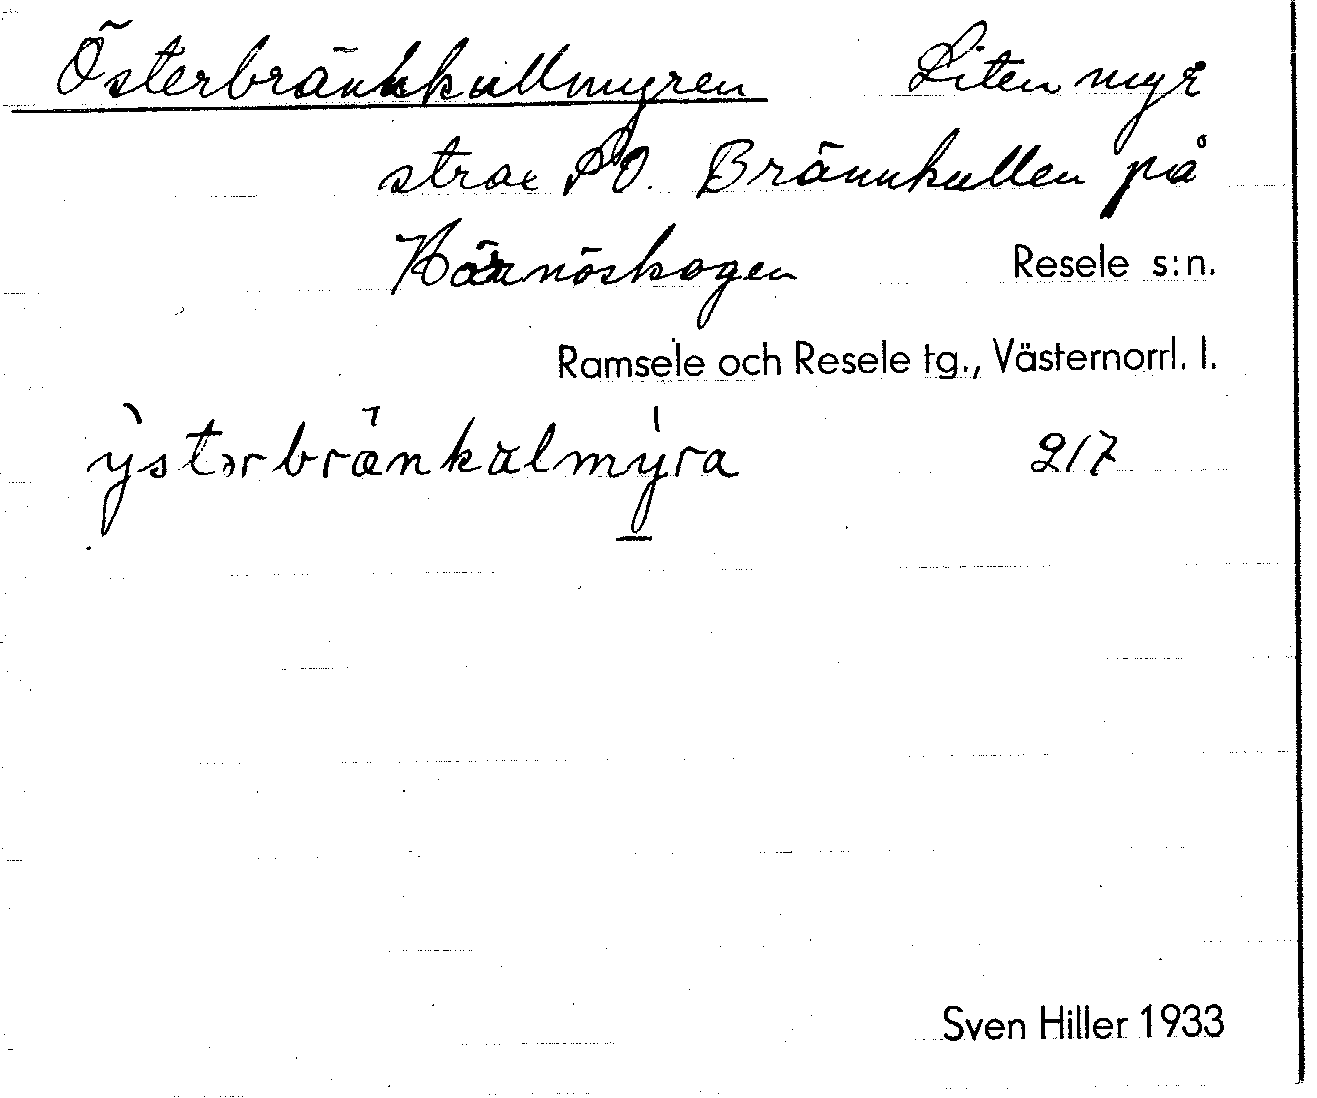 Österbränkkullmyren Liten myr
strax SO. Brännkullen på
Resele s:n.
Ramsele och Resele tg., Västernorrl. l.
ỳstərbränkulmýra 217
Sven Hiller 1933